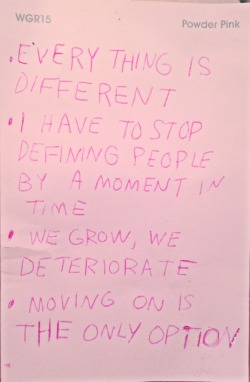 WGR15 Powder Pink
• EVERY THING IS
DIFFERENT
• I HAVE TO STOP
DEFINING PEOPLE
BY A MOMENT IN
TIME
• WE GROW, WE
DETERIORATE
• MOVING ON IS
THE ONLY OPTION